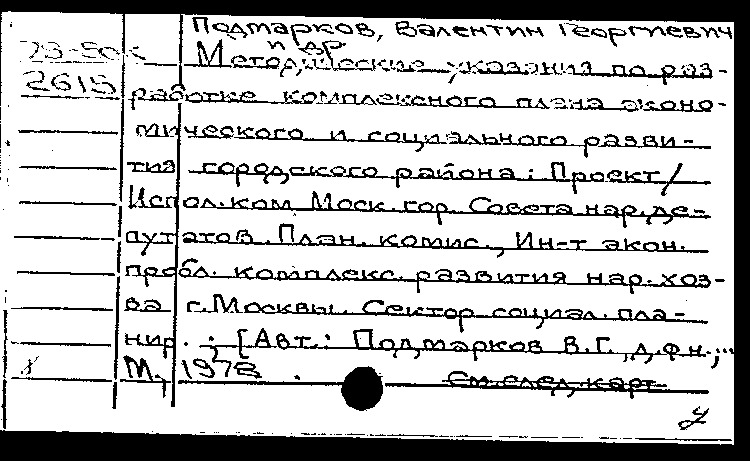 Подмарков, Валентин Георгиевич
и др
79-50к Методические указания по раз-
2615 работке комплексного плана эконо-
мического и социального разви-
тия городского района: Проект/
Исполком Моск. гор. Совета нар. де-
путатов. План. комис., Ин-т экон.
пробл. комплекс. развития нар. хоз-
ва г. Москвы. Сектор социал. пла-
нир. ; [Авт.: Подмарков В.Г., д.ф.н.,...
М., 1978.
См. след. карт.